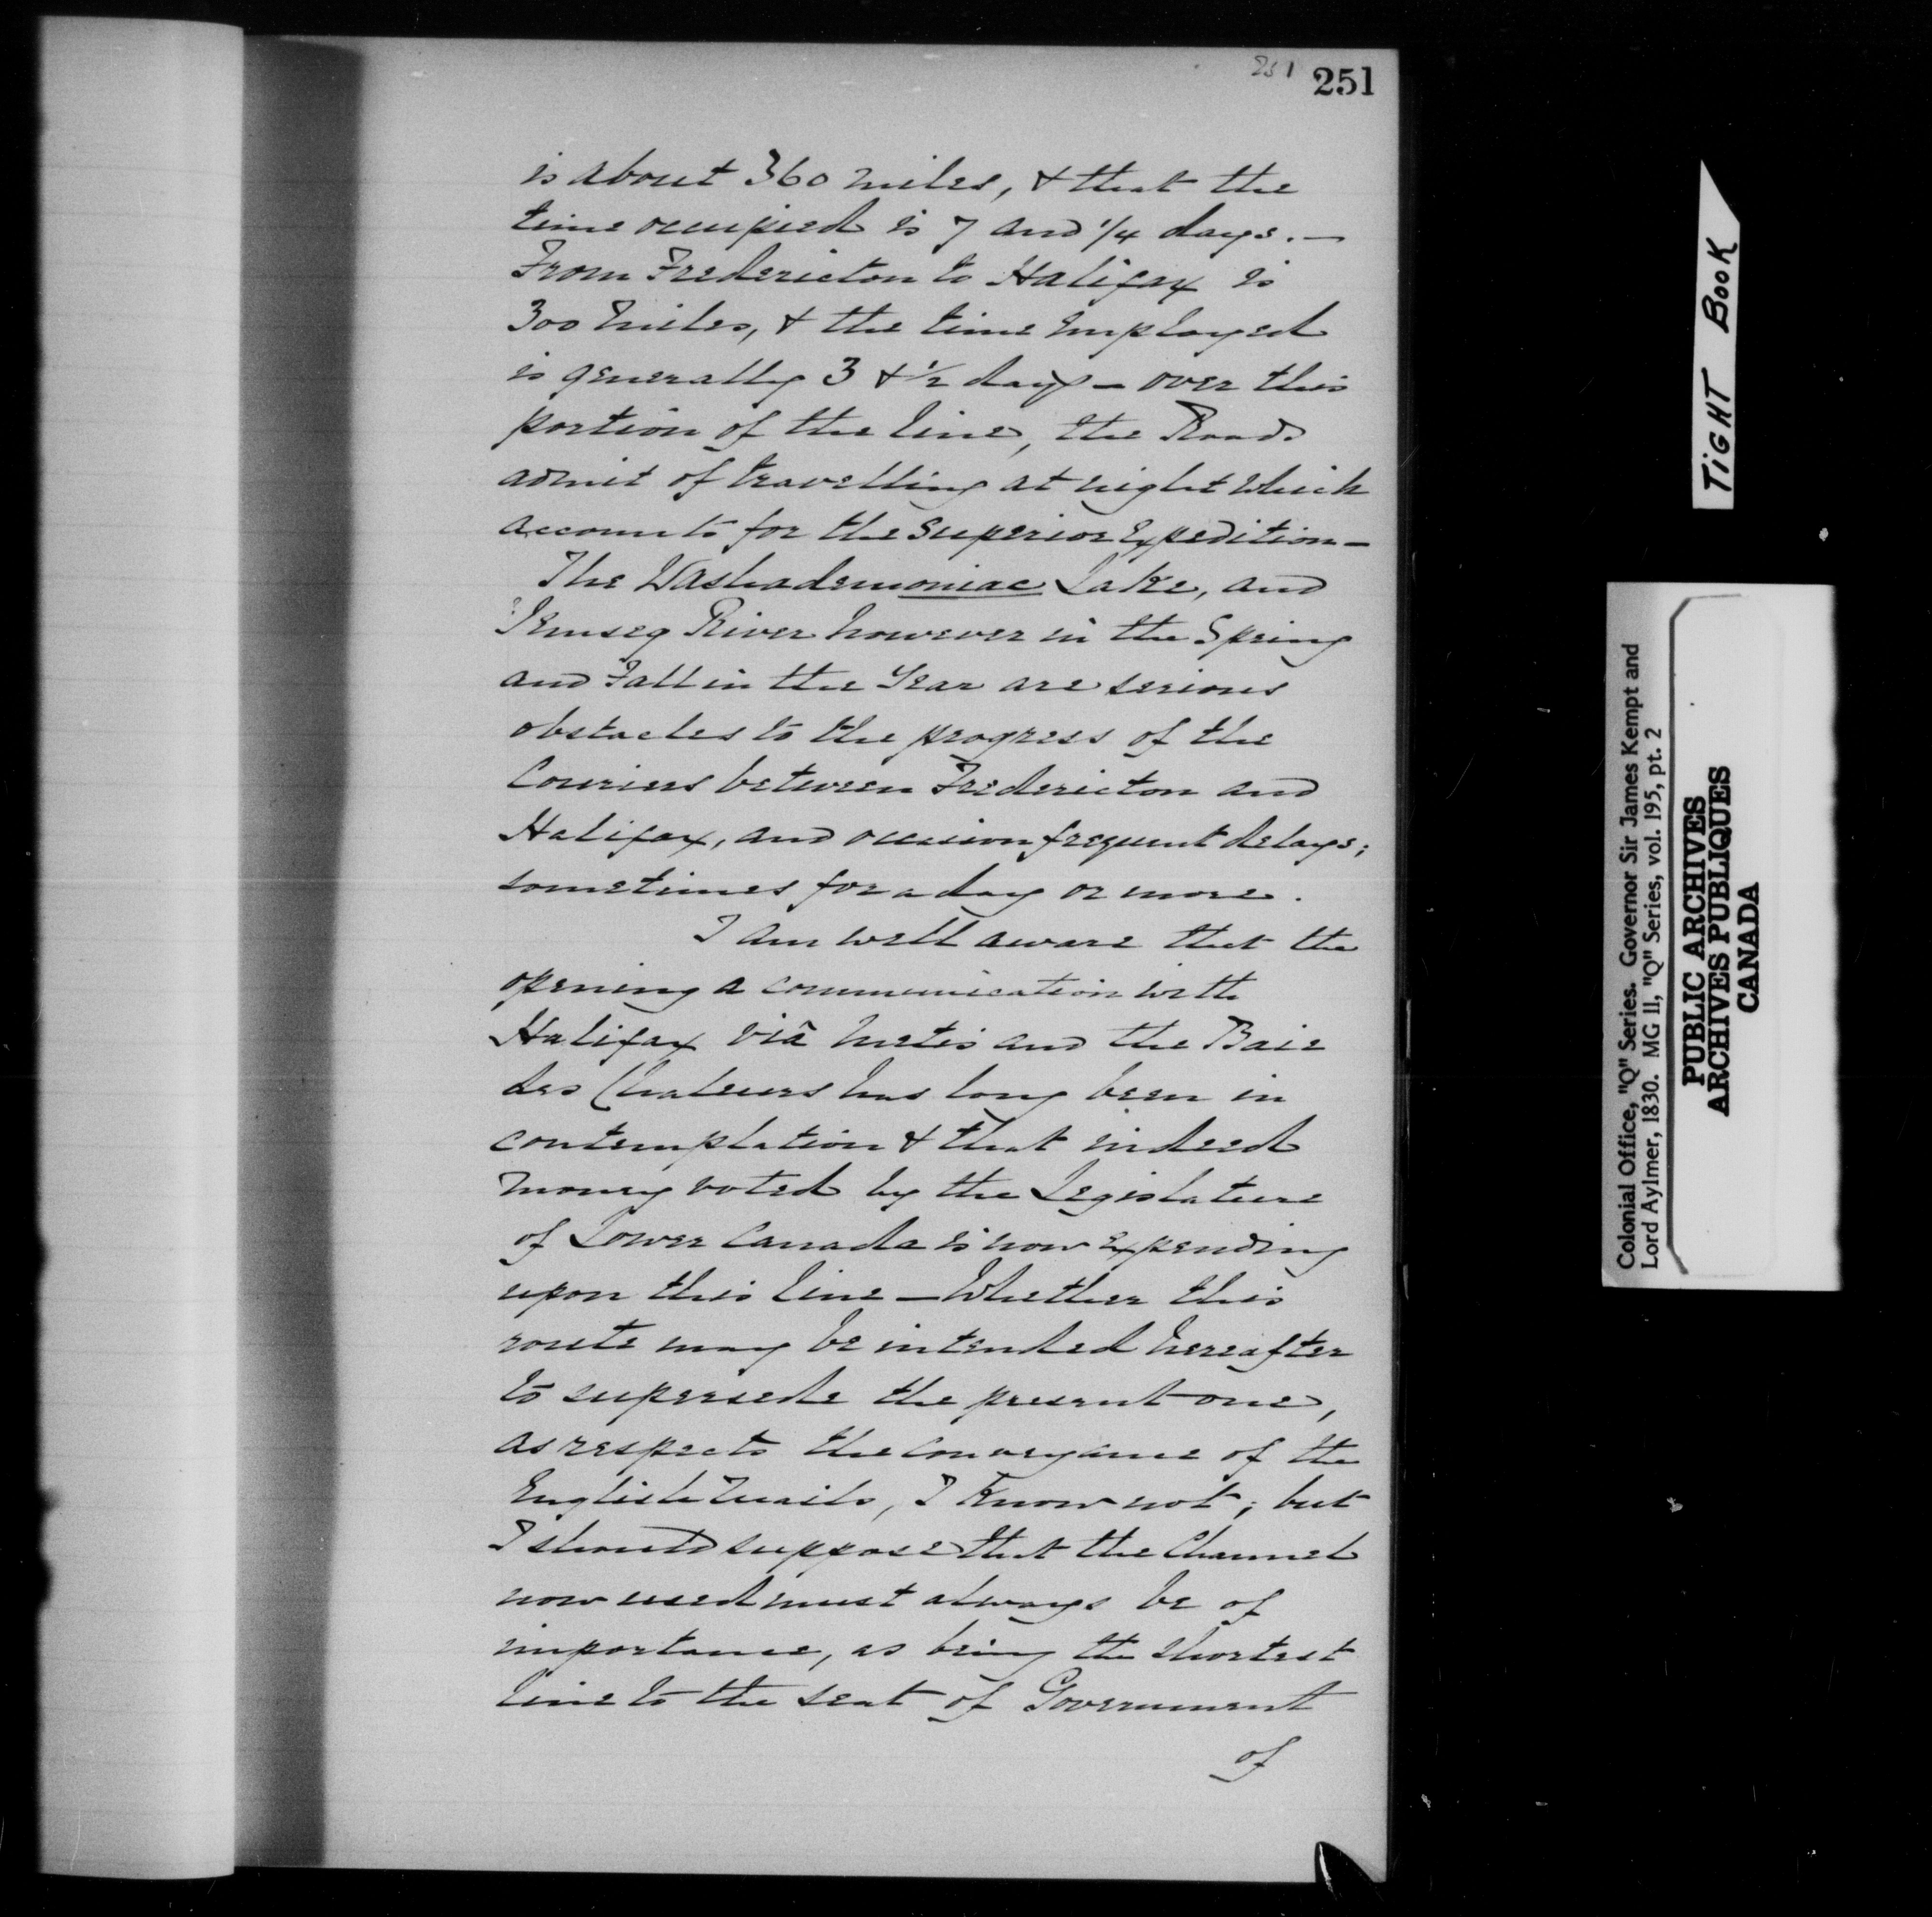 251 251
is about 360 miles, & that the
time occupied is 7 and 1/4 days. —
From Fredericton to Halifax is
300 Miles, & the time employed
is generally 3 & 1/2 days — over this
portion of the line, the Roads
admit of travelling at night which
accounts for the Superior Expedition —
The Washademoniac Lake, and
Jemseg River however in the Spring
and Fall in the Year are serious
obstacles to the progress of the
Couriers between Fredericton and
Halifax, and occasion frequent delays;
sometimes for a day or more.
I am well aware that the
opening a communication with
Halifax viâ Metis and the Baie
des Chaleurs has long been in
contemplation & that indeed
money voted by the Legislature
of Lower Canada is now expending
upon this line — Whether this
route may be intended hereafter
to supersede the present one,
as respects the conveyance of the
English Mails, I Know not; but
I should suppose that the Channel
now used must always be of
importance, as being the shortest
line to the seat of Government
of
TIGHT BOOK
Colonial Office, "Q" Series. Governor Sir James Kempt and
Lord Aylmer, 1830. MG 11, "Q" Series, vol. 195, pt. 2
PUBLIC ARCHIVES
ARCHIVES PUBLIQUES
CANADA